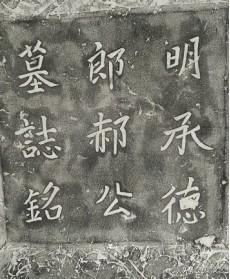 明承德
郎郝公
墓誌銘